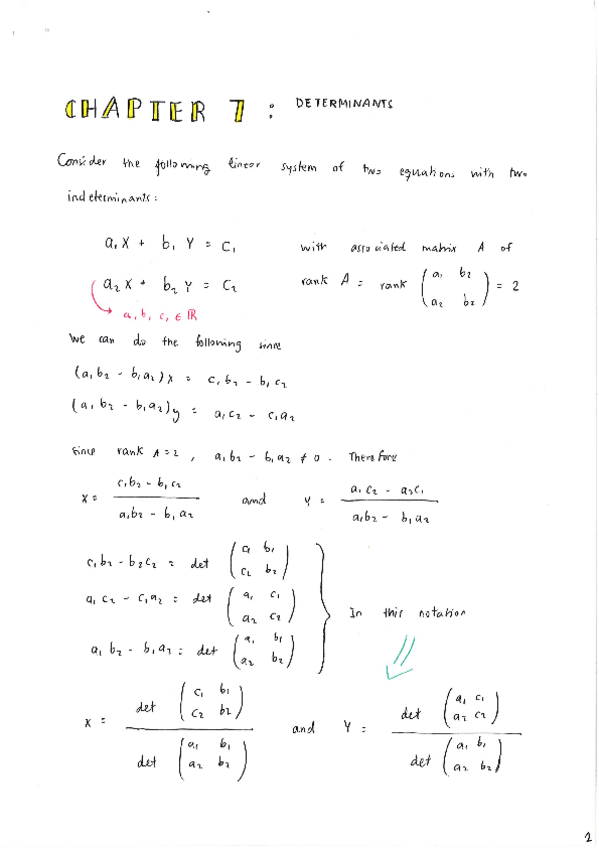 CHAPTER 7 : DETERMINANTS
Consider the following linear system of two equations with two
indeterminants:
a₁X + b₁Y = C₁ with associated matrix A of
a₂X + b₂Y = C₂ rank A = rank (a₁ b₂ / a₂ b₂) = 2
a, b, c, ∈ ℝ
We can do the following since
(a₁b₂ - b₁a₂)x = c₁b₂ - b₁c₂
(a₁b₂ - b₁a₂)y = a₁c₂ - c₁a₂
Since rank A=2, a₁b₂ - b₁a₂ ≠ 0. Therefore
x = (c₁b₂ - b₁c₂) / (a₁b₂ - b₁a₂) and y = (a₁c₂ - a₂c₁) / (a₁b₂ - b₁a₂)
c₁b₂ - b₂c₂ = det (c₁ b₁ / c₂ b₂)
a₁c₂ - c₁a₂ = det (a₁ c₁ / a₂ c₂) In this notation
a₁b₂ - b₁a₂ = det (a₁ b₁ / a₂ b₂)
x = det (c₁ b₁ / c₂ b₂) / det (a₁ b₁ / a₂ b₂) and Y = det (a₁ c₁ / a₂ c₂) / det (a₁ b₁ / a₂ b₂)
2